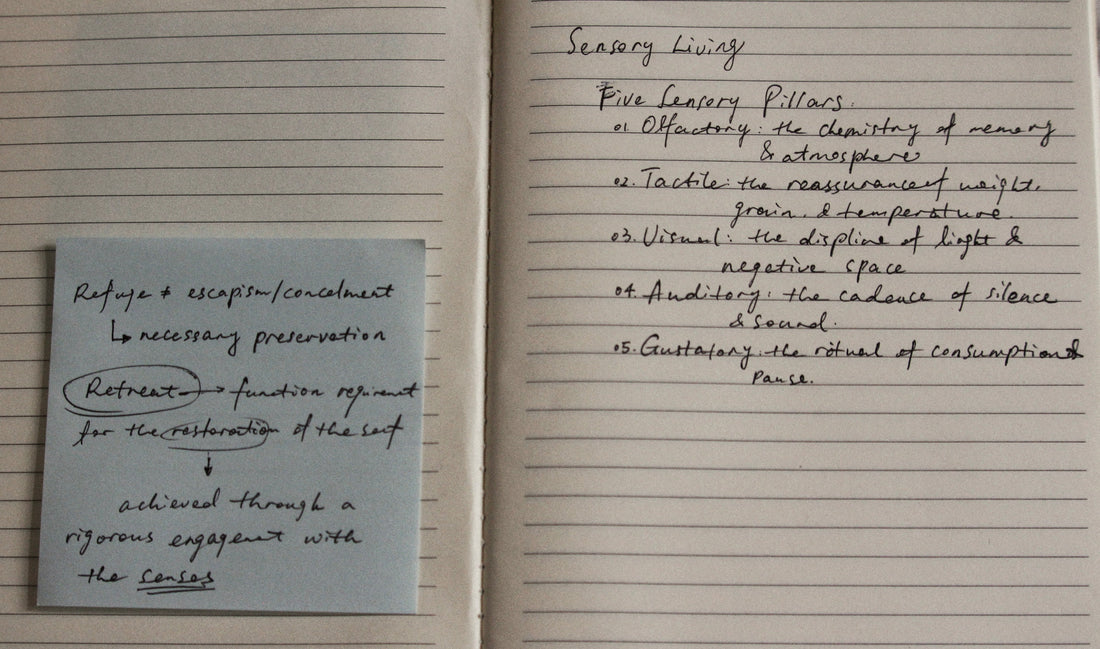 Refuge ≠ escapism/concelment
↳ necessary preservation
Retreat → function requirement
for the restoration of the self
↓
achieved through a
rigorous engagement with
the senses
Sensory Living
Five Sensory Pillars.
01. Olfactory: the chemistry of memory
& atmosphere
02. Tactile: the reassurance of weight,
grain, & temperature.
03. Visual: the displine of light &
negative space
04. Auditory: the cadence of silence
& sound.
05. Gustatory: the ritual of consumption &
pause.